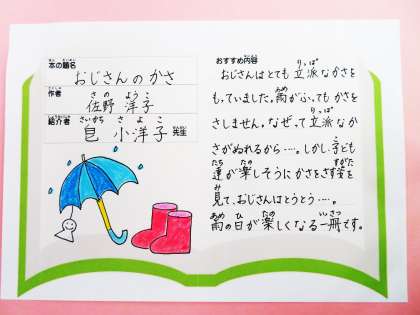 本の題名
おじさんのかさ
作者
さの ようこ
佐野 洋子
紹介者
さいかち さよこ
皀 小洋子
おすすめ内容
りっぱ
おじさんはとても立派なかさを
あめ
もっていました。雨がふってもかさを
りっぱ
さしません。なぜって立派なか
こ
さがぬれるから‥‥。しかし、子ども
たち たの すがた
達が楽しそうにかさをさす姿を
み
見て、おじさんはとうとう‥‥。
あめ ひ たの いっさつ
雨の日が楽しくなる一冊です。